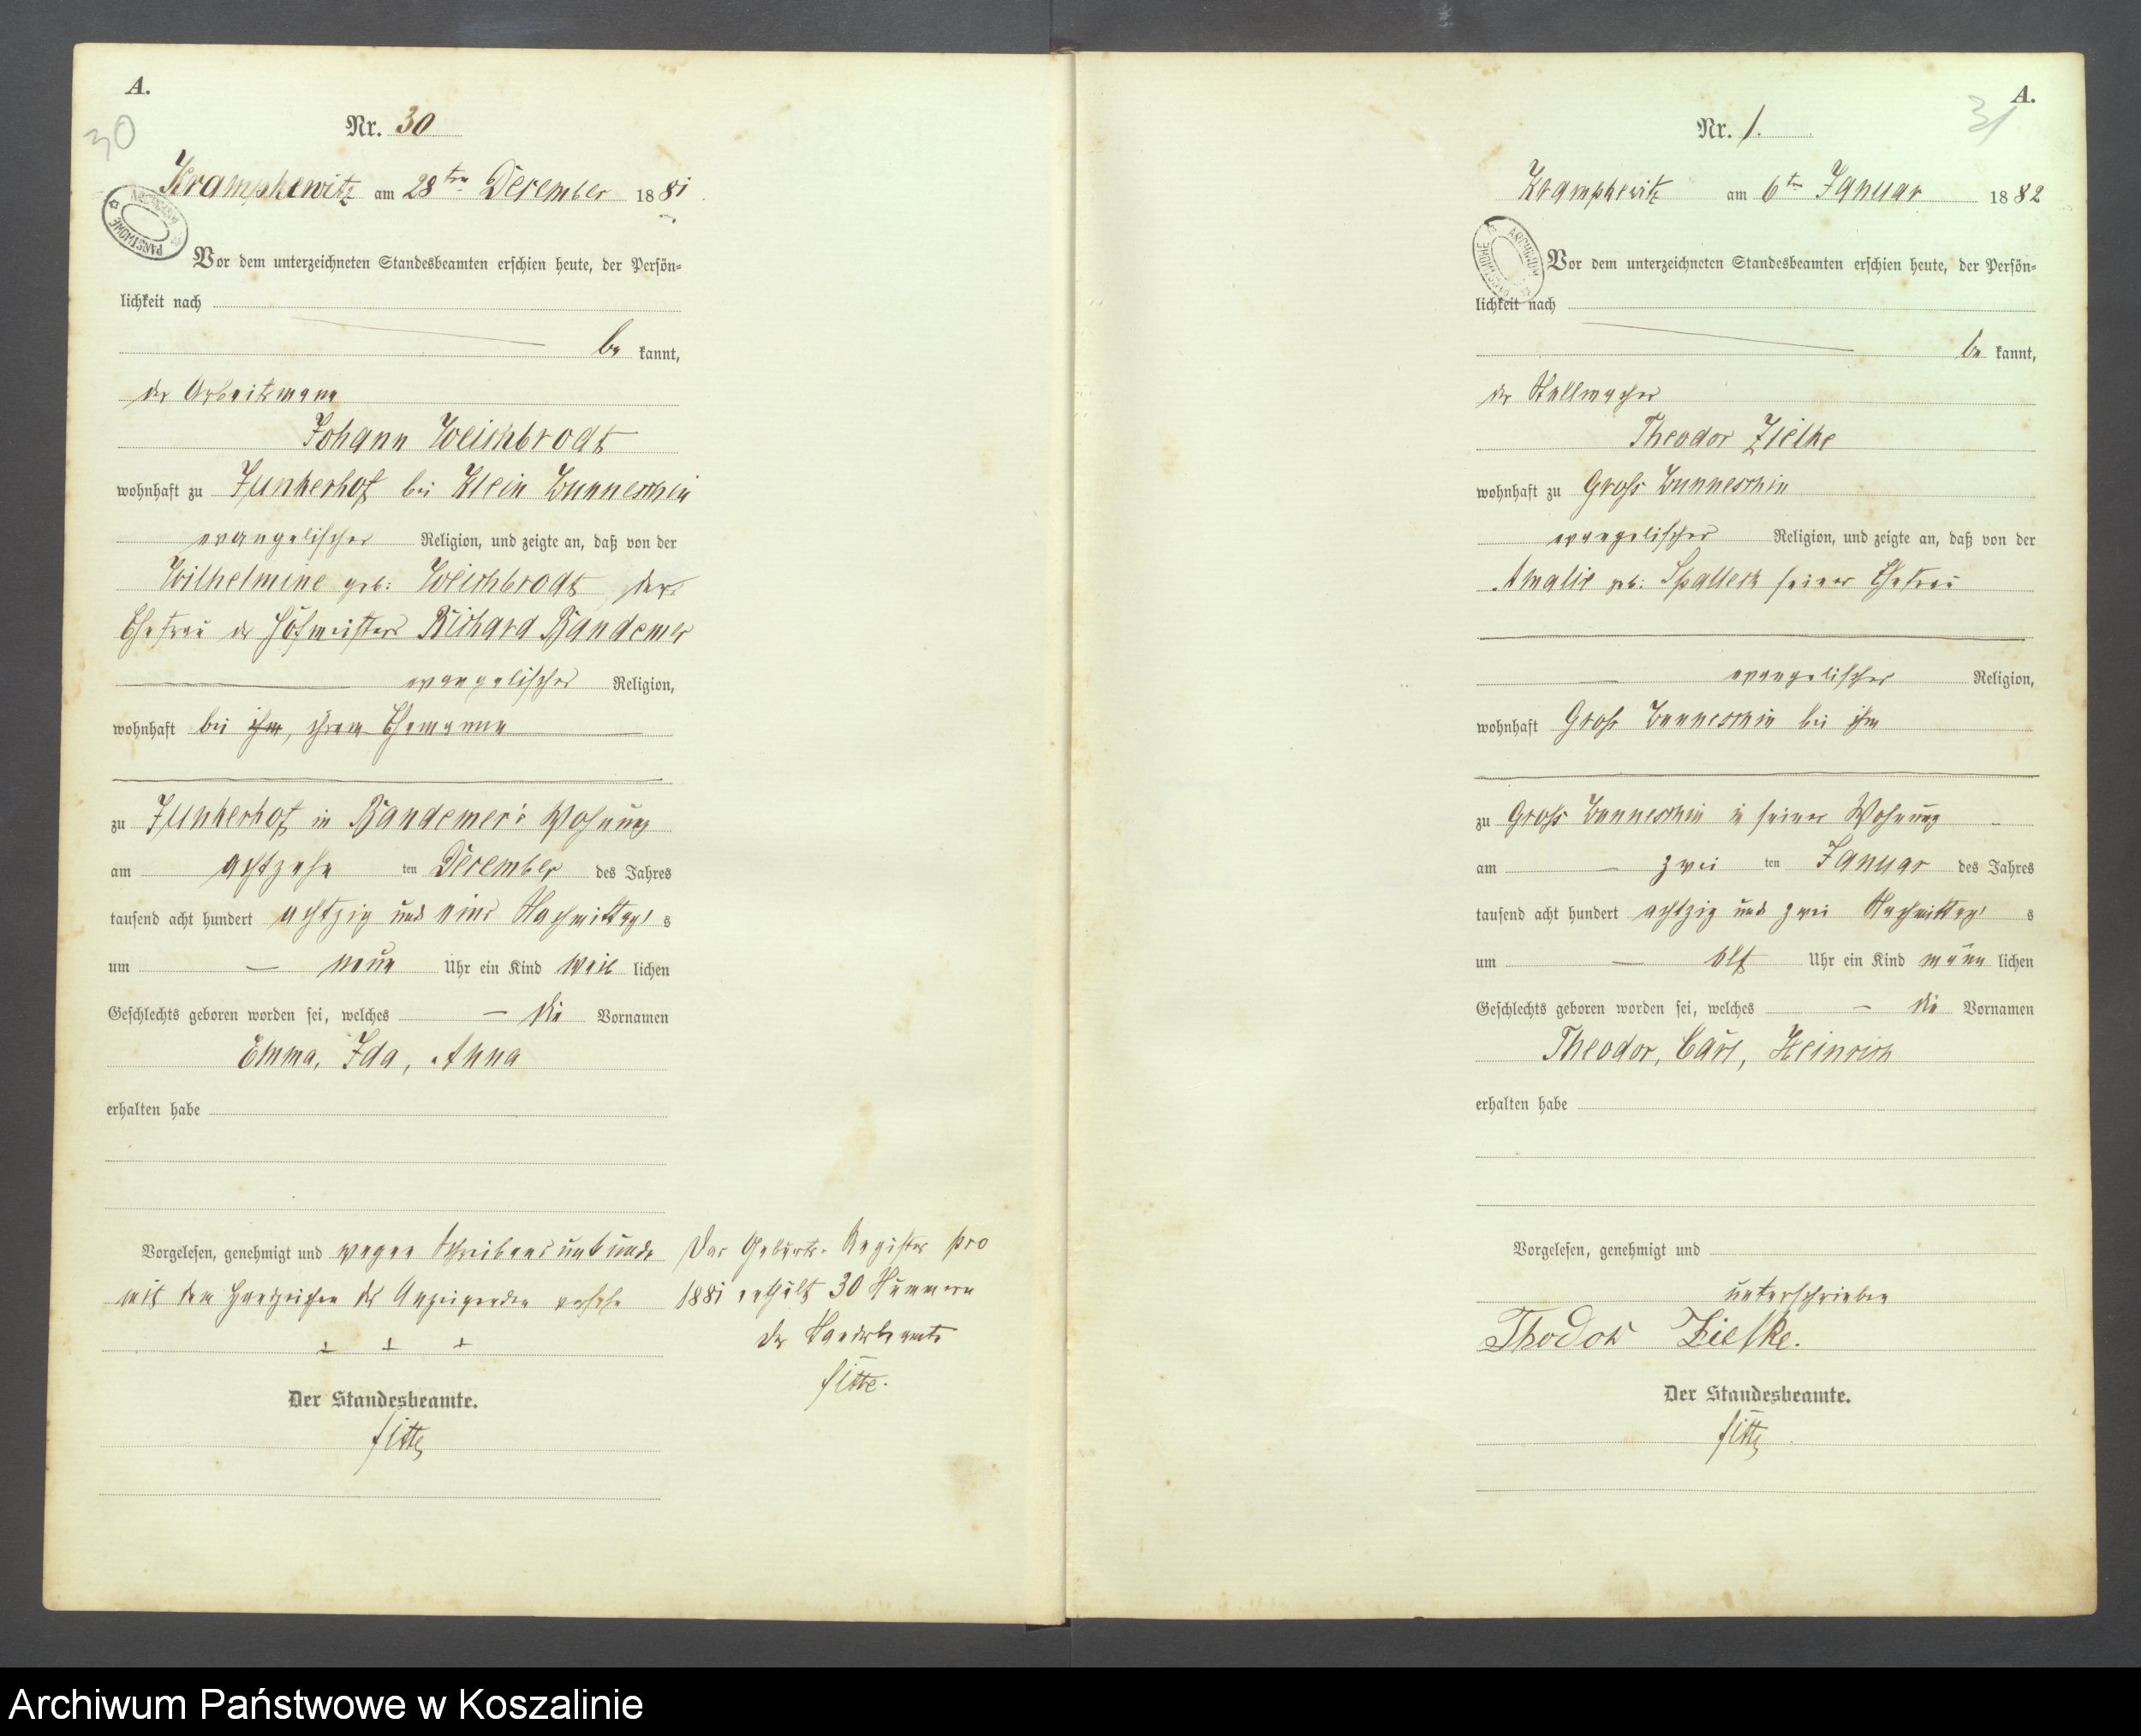 A.
30
Nr. 30
Kramphewitz am 28ten December 1881
Vor dem unterzeichneten Standesbeamten erschien heute, der Persön=
lichkeit nach
be kannt,
der Arbeitsmann
Johann Weichbrodt
wohnhaft zu Junkerhof bei Klein Wunneschin
evangelischer Religion, und zeigte an, daß von der
Wilhelmine geb: Weichbrodt, der
Ehefrau des Hofmeisters Richard Bandemer
evangelischer Religion,
wohnhaft bei ihm, ihrem Ehemanne
zu Junkerhof in Bandemer's Wohnung
am achtzehn ten December des Jahres
tausend acht hundert achtzig und eins Nachmittags s
um neun Uhr ein Kind weib lichen
Geschlechts geboren worden sei, welches die Vornamen
Emma, Ida, Anna
erhalten habe
Vorgelesen, genehmigt und wegen Schreibensunkunde
mit dem Handzeichen des Anzeigenden versehen
+ + +
Der Standesbeamte.
Das Geburts-Register pro
1881 enthält 30 Nummern
Der Standesbeamte
A.
31
Nr. 1.
Kramphewitz am 6ten Januar 1882
ARCHIWUM
Vor dem unterzeichneten Standesbeamten erschien heute, der Persön=
lichkeit nach
be kannt,
der Stellmacher
Theodor Zielke
wohnhaft zu Gross Wunneschin
evangelischer Religion, und zeigte an, daß von der
Amalie geb: Spalleck seiner Ehefrau
evangelischer Religion,
wohnhaft Gross Wunneschin bei ihm
zu Gross Wunneschin in seiner Wohnung
am zwei ten Januar des Jahres
tausend acht hundert achtzig und zwei Nachmittags s
um elf Uhr ein Kind männ lichen
Geschlechts geboren worden sei, welches die Vornamen
Theodor, Carl, Heinrich
erhalten habe
Vorgelesen, genehmigt und
unterschrieben
Thodor Zielke.
Der Standesbeamte.
Archiwum Państwowe w Koszalinie